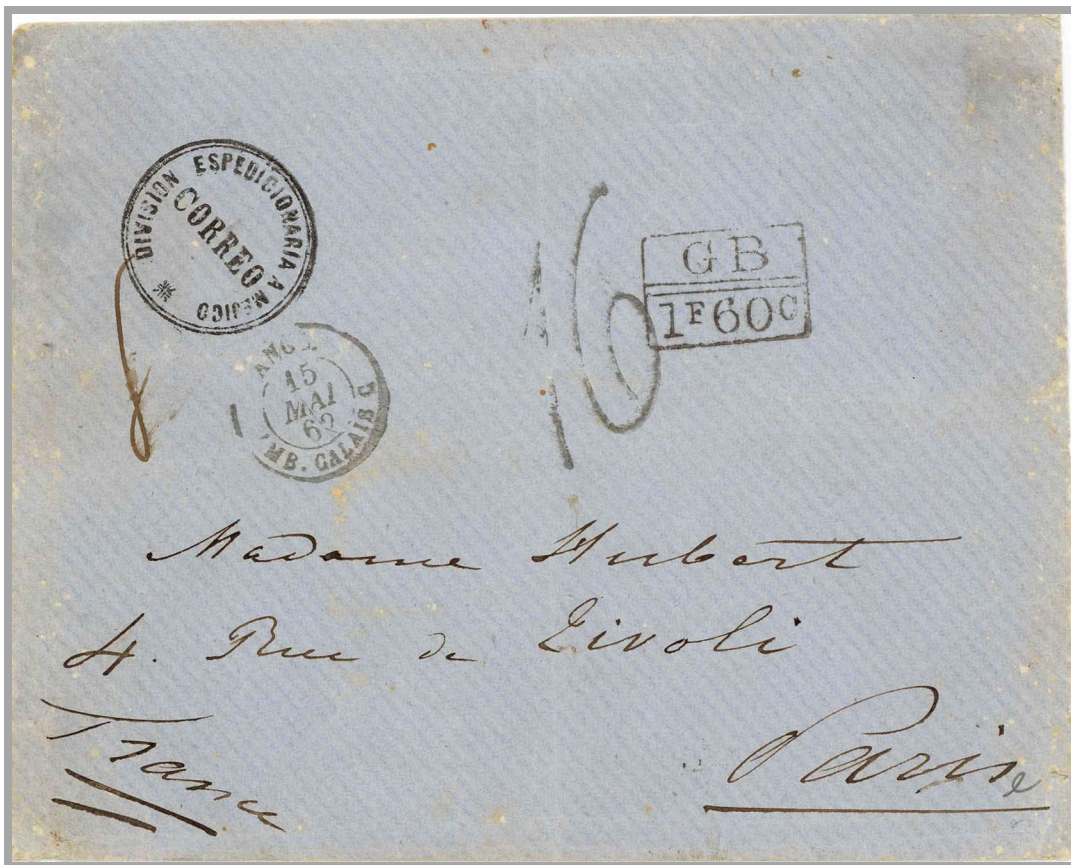 DIVISION ESPEDICIONARIA A MEJICO
CORREO
ANGL.
15
MAI
62
AMB. CALAIS C
16
GB
1F60C
Madame Hubert
4. Rue de Rivoli
France
Paris